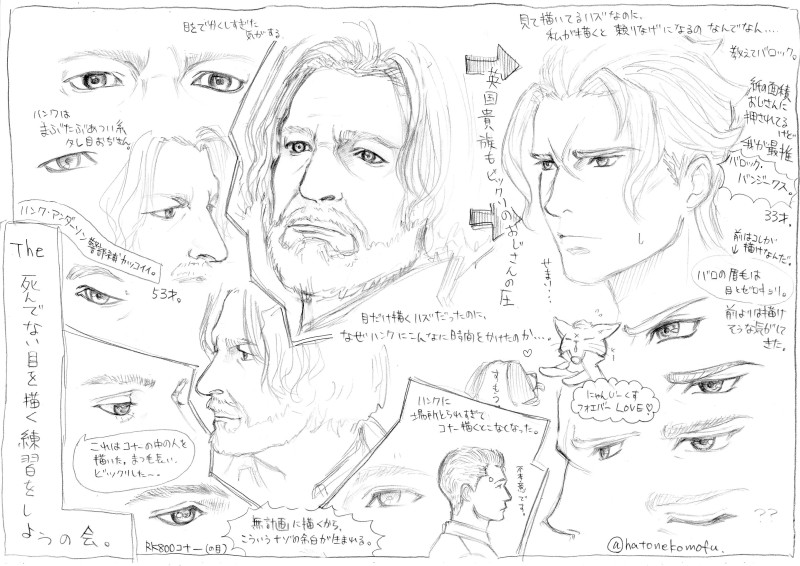 目をでかくしすぎた
気がする
見て描いてるハズなのに、
私が描くと 頼りなげになるの なんでなん....
教えてバロック。
ハンクは
まぶたぶあつい系
タレ目おぢさん。
英国貴族もビックリのおじさんの圧
紙の面積
おじさんに
押されてる
けど
我が最推
バロック・
バンジークス。
33才。
ハンク・アンダーソン 警部補カッコイイ。
53才。
前はコレしか
↓描けなんだ。
バロの眉毛は
目とゼロキョリ。
前よりは描け
そうな気がして
きた。
せまい...
The 死んでない目を描く練習をしようの会。
目だけ描くハズだったのに、
なぜハンクにこんなに時間をかけたのか....
すもう
にゃんじーくす
フォエバー LOVE♡
ハンクに
場所とられすぎて
コナー描くとこなくなった。
不本意です。
これはコナーの中の人を
描いた。まつ毛長い。
ビックリした〜。
RK800コナー(の目)
無計画に描くから、
こういうナゾの余白が生まれる。
??
@hatonekomofu.